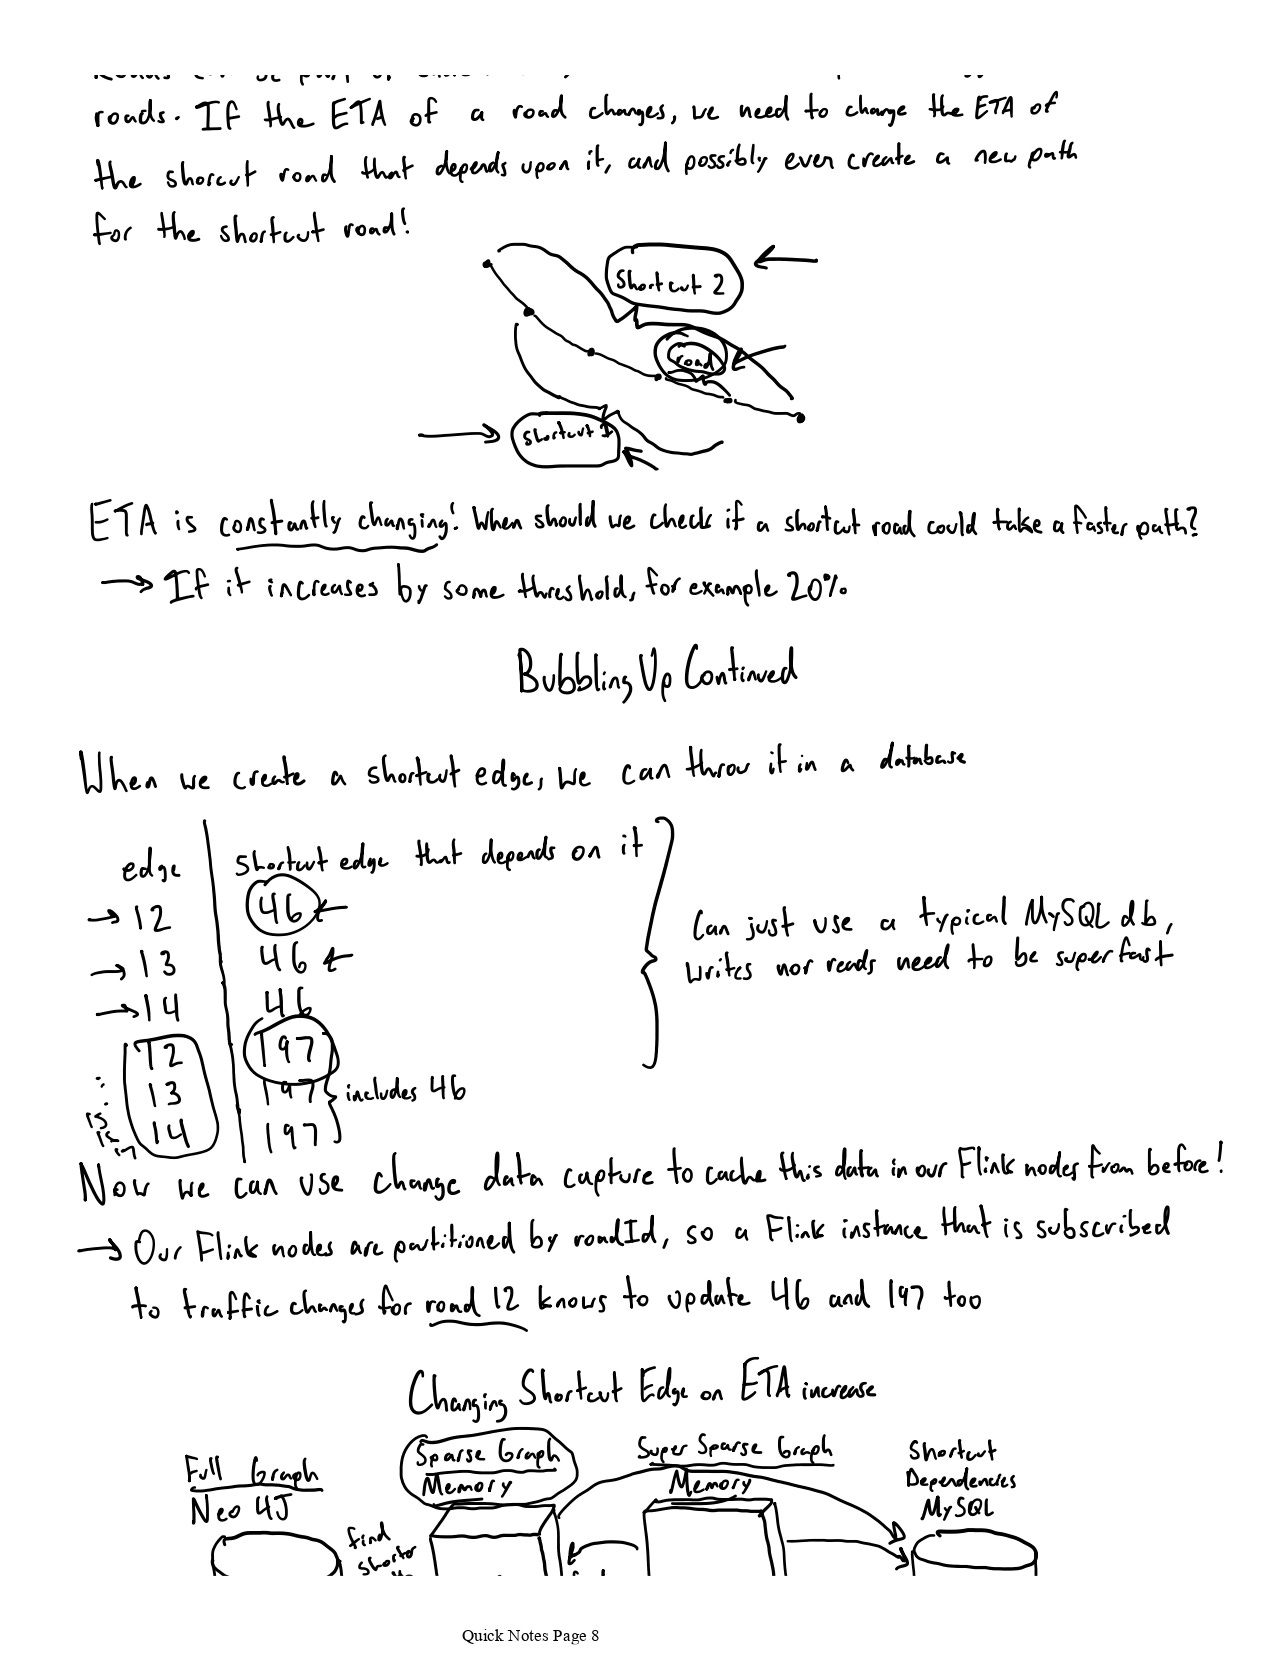 roads. If the ETA of a road changes, we need to change the ETA of
the shorcut road that depends upon it, and possibly even create a new path
for the shortcut road!
Shortcut 2
road
Shortcut 1
ETA is constantly changing! When should we check if a shortcut road could take a faster path?
→ If it increases by some threshold, for example 20%.
Bubbling Up Continued
When we create a shortcut edge, we can throw it in a database
edge | Shortcut edge that depends on it
→ 12 | 46 ←
→ 13 | 46 ←
→ 14 | 46
12 | 197
13 | 197
14 | 197
includes 46
15
17
Can just use a typical MySQL db,
writes nor reads need to be super fast
Now we can use change data capture to cache this data in our Flink nodes from before!
→ Our Flink nodes are partitioned by roadId, so a Flink instance that is subscribed
to traffic changes for road 12 knows to update 46 and 197 too
Changing Shortcut Edge on ETA increase
Full Graph
Neo 4J
find
shorter
Sparse Graph
Memory
Super Sparse Graph
Memory
Shortcut
Dependencies
MySQL
Quick Notes Page 8